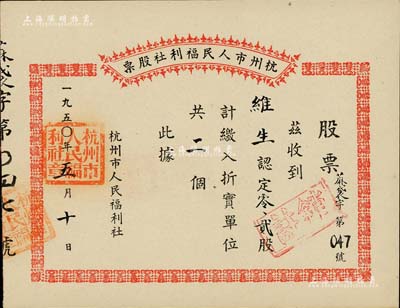 上海陽明拍賣
杭州市人民福利社股票
股票
字第047號
茲收到
維生認定零貳股
計繳入折實單位
共二個
此據
杭州市人民福利社
一九五〇年五月十日
杭州市人民福利社章